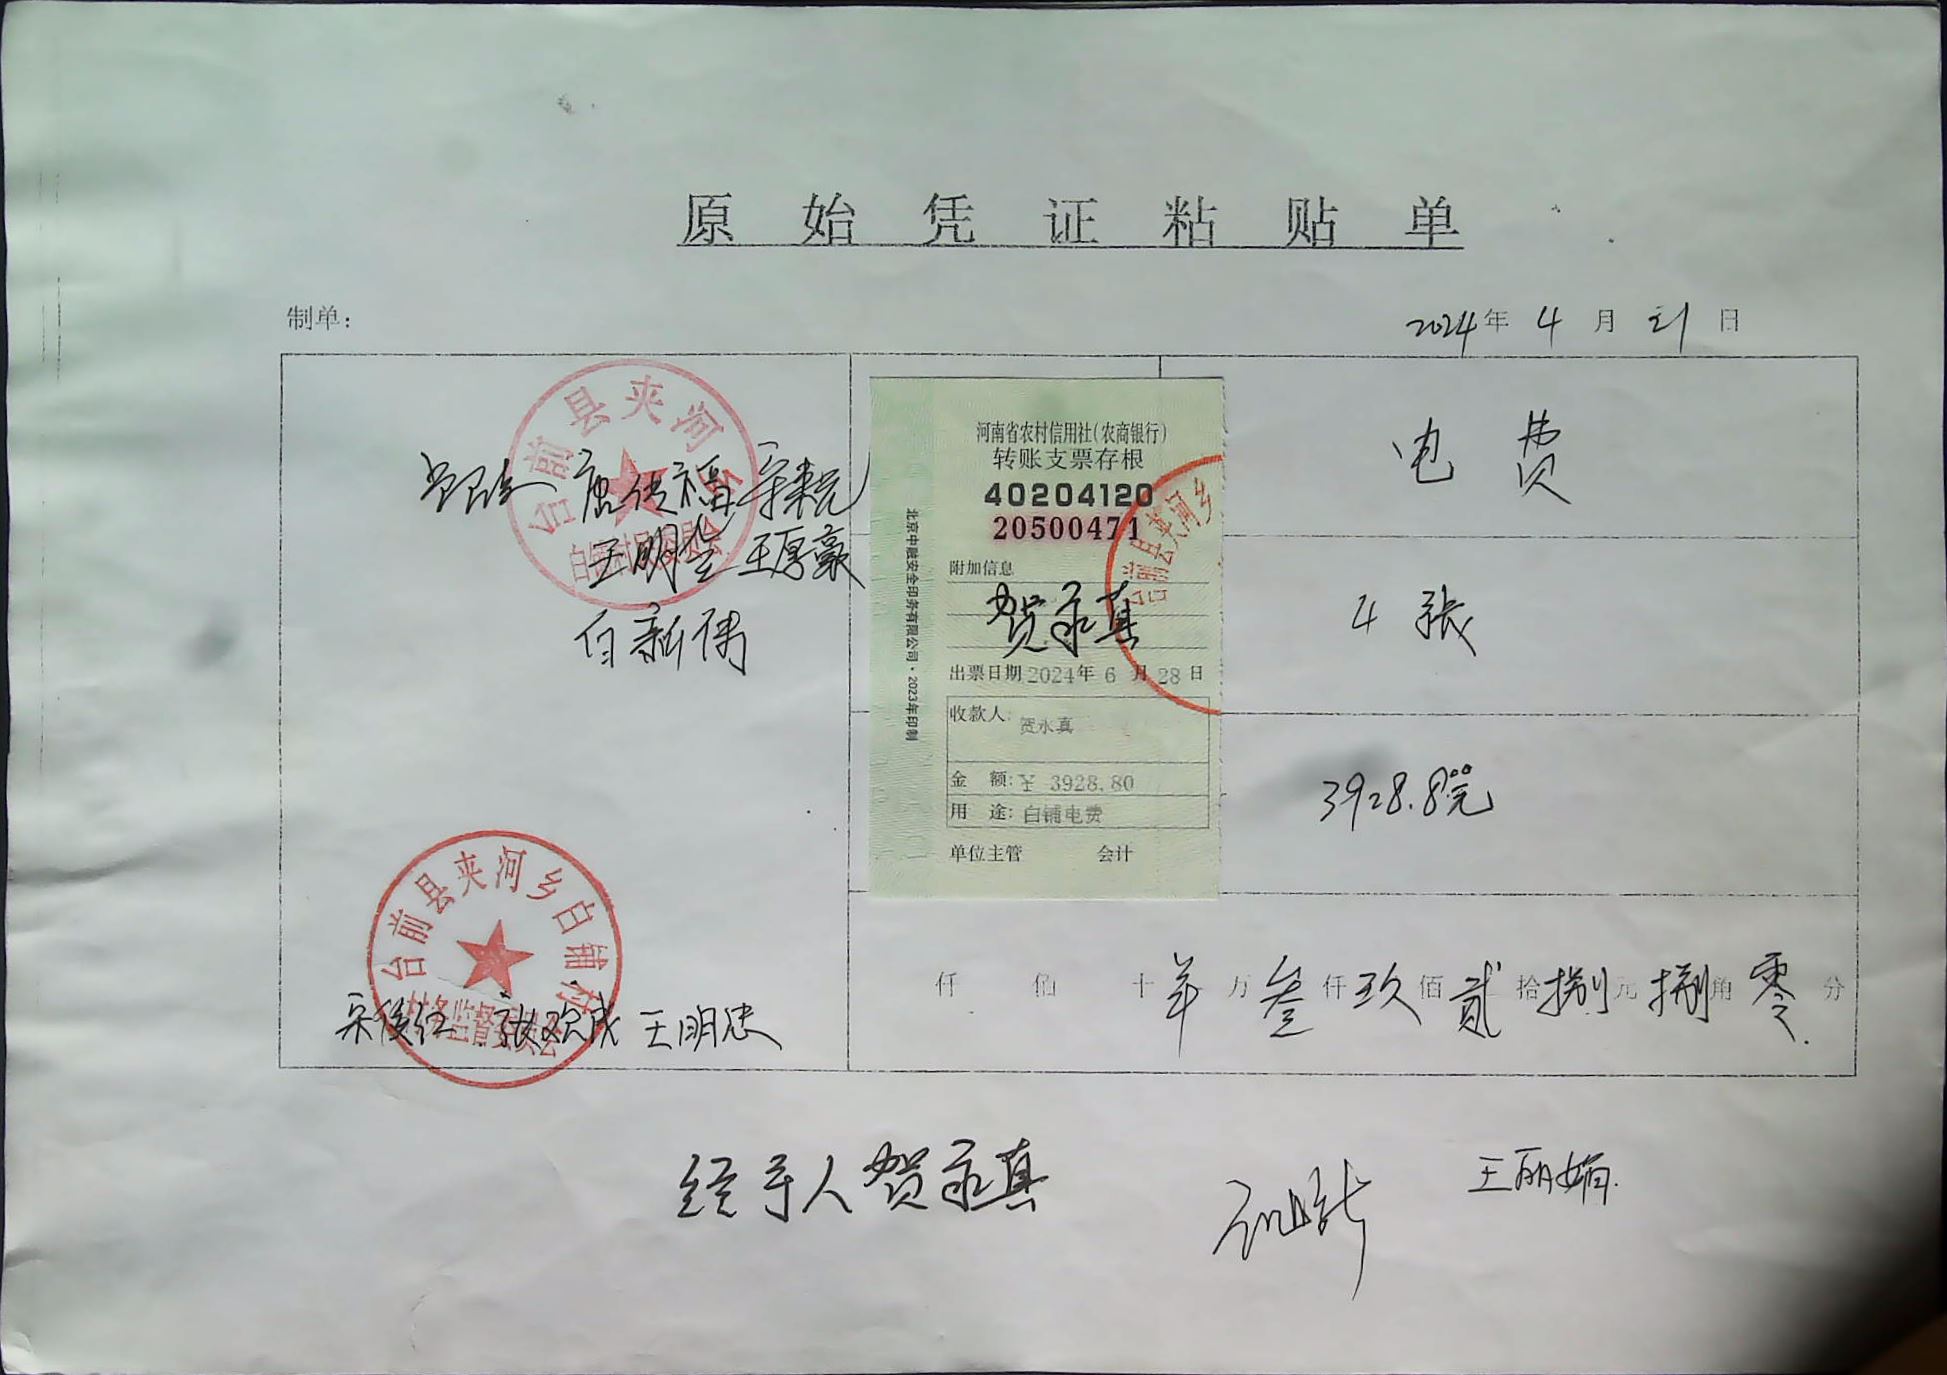 原始凭证粘贴单
制单：
2024年 4 月 21 日
台前县夹河
唐传福
王明
白新伟
台前县夹河乡白铺村
村务监督委员会
王明忠
河南省农村信用社(农商银行)
转账支票存根
40204120
20500471
附加信息
贺永真
出票日期 2024年 6 月 28 日
收款人: 贺永真
金 额: ¥ 3928.80
用 途: 白铺电费
单位主管 会计
北京中融安全印务有限公司·2023年印制
台前县夹河乡
电 费
4 张
3928.80元
仟 佰 十 万 叁仟玖佰贰拾捌元捌角零分
经手人贺永真
王丽娟